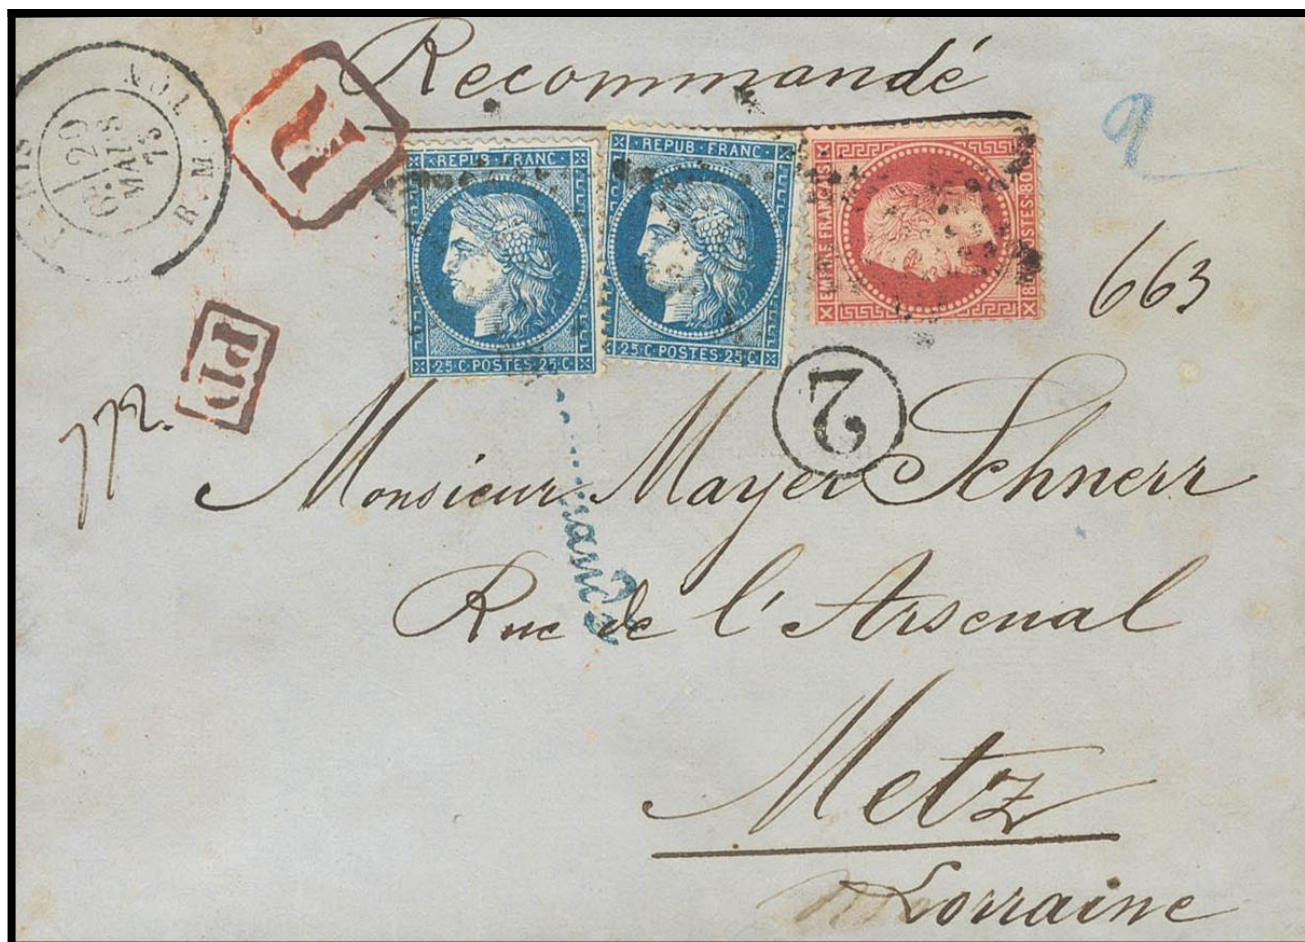 Recommandé
29
MARS
73
R
REPUB · FRANC
25 · C · POSTES · 25 · C
REPUB · FRANC
25 · C · POSTES · 25 · C
EMPIRE FRANÇAIS
POSTES · 80
2
663
PD
772.
2
Monsieur Mayer Schnerr
Rue de l'Arsenal
Metz
Lorraine